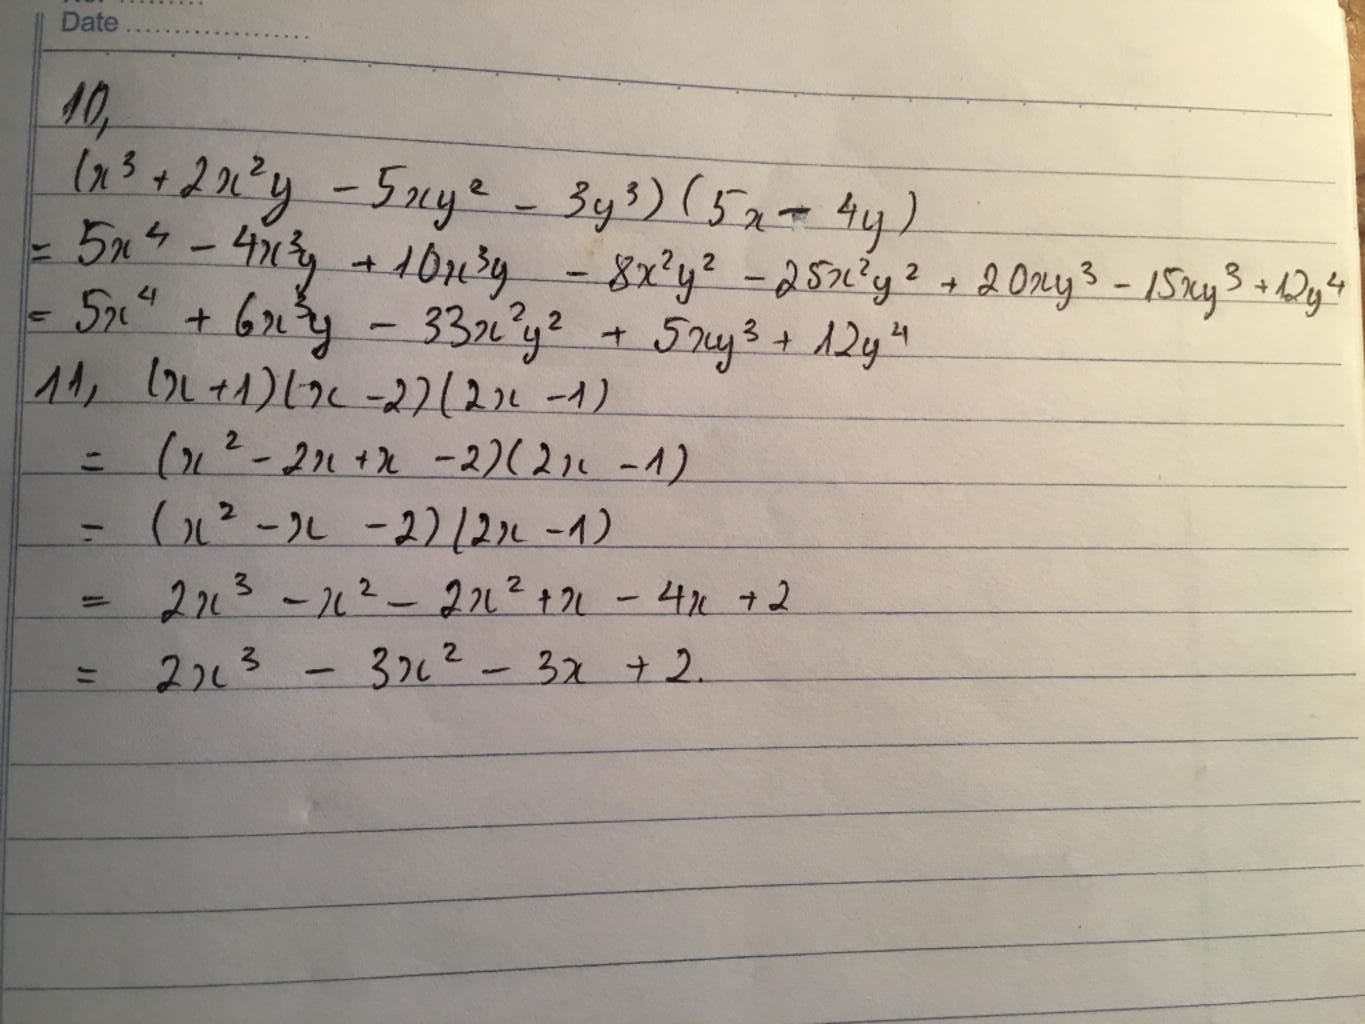 Date ....................
10,
(x³ + 2x²y - 5xy² - 3y³)(5x - 4y)
= 5x⁴ - 4x³y + 10x³y - 8x²y² - 25x²y² + 20xy³ - 15xy³ + 12y⁴
= 5x⁴ + 6x³y - 33x²y² + 5xy³ + 12y⁴
11, (x + 1)(x - 2)(2x - 1)
= (x² - 2x + x - 2)(2x - 1)
= (x² - x - 2)(2x - 1)
= 2x³ - x² - 2x² + x - 4x + 2
= 2x³ - 3x² - 3x + 2.